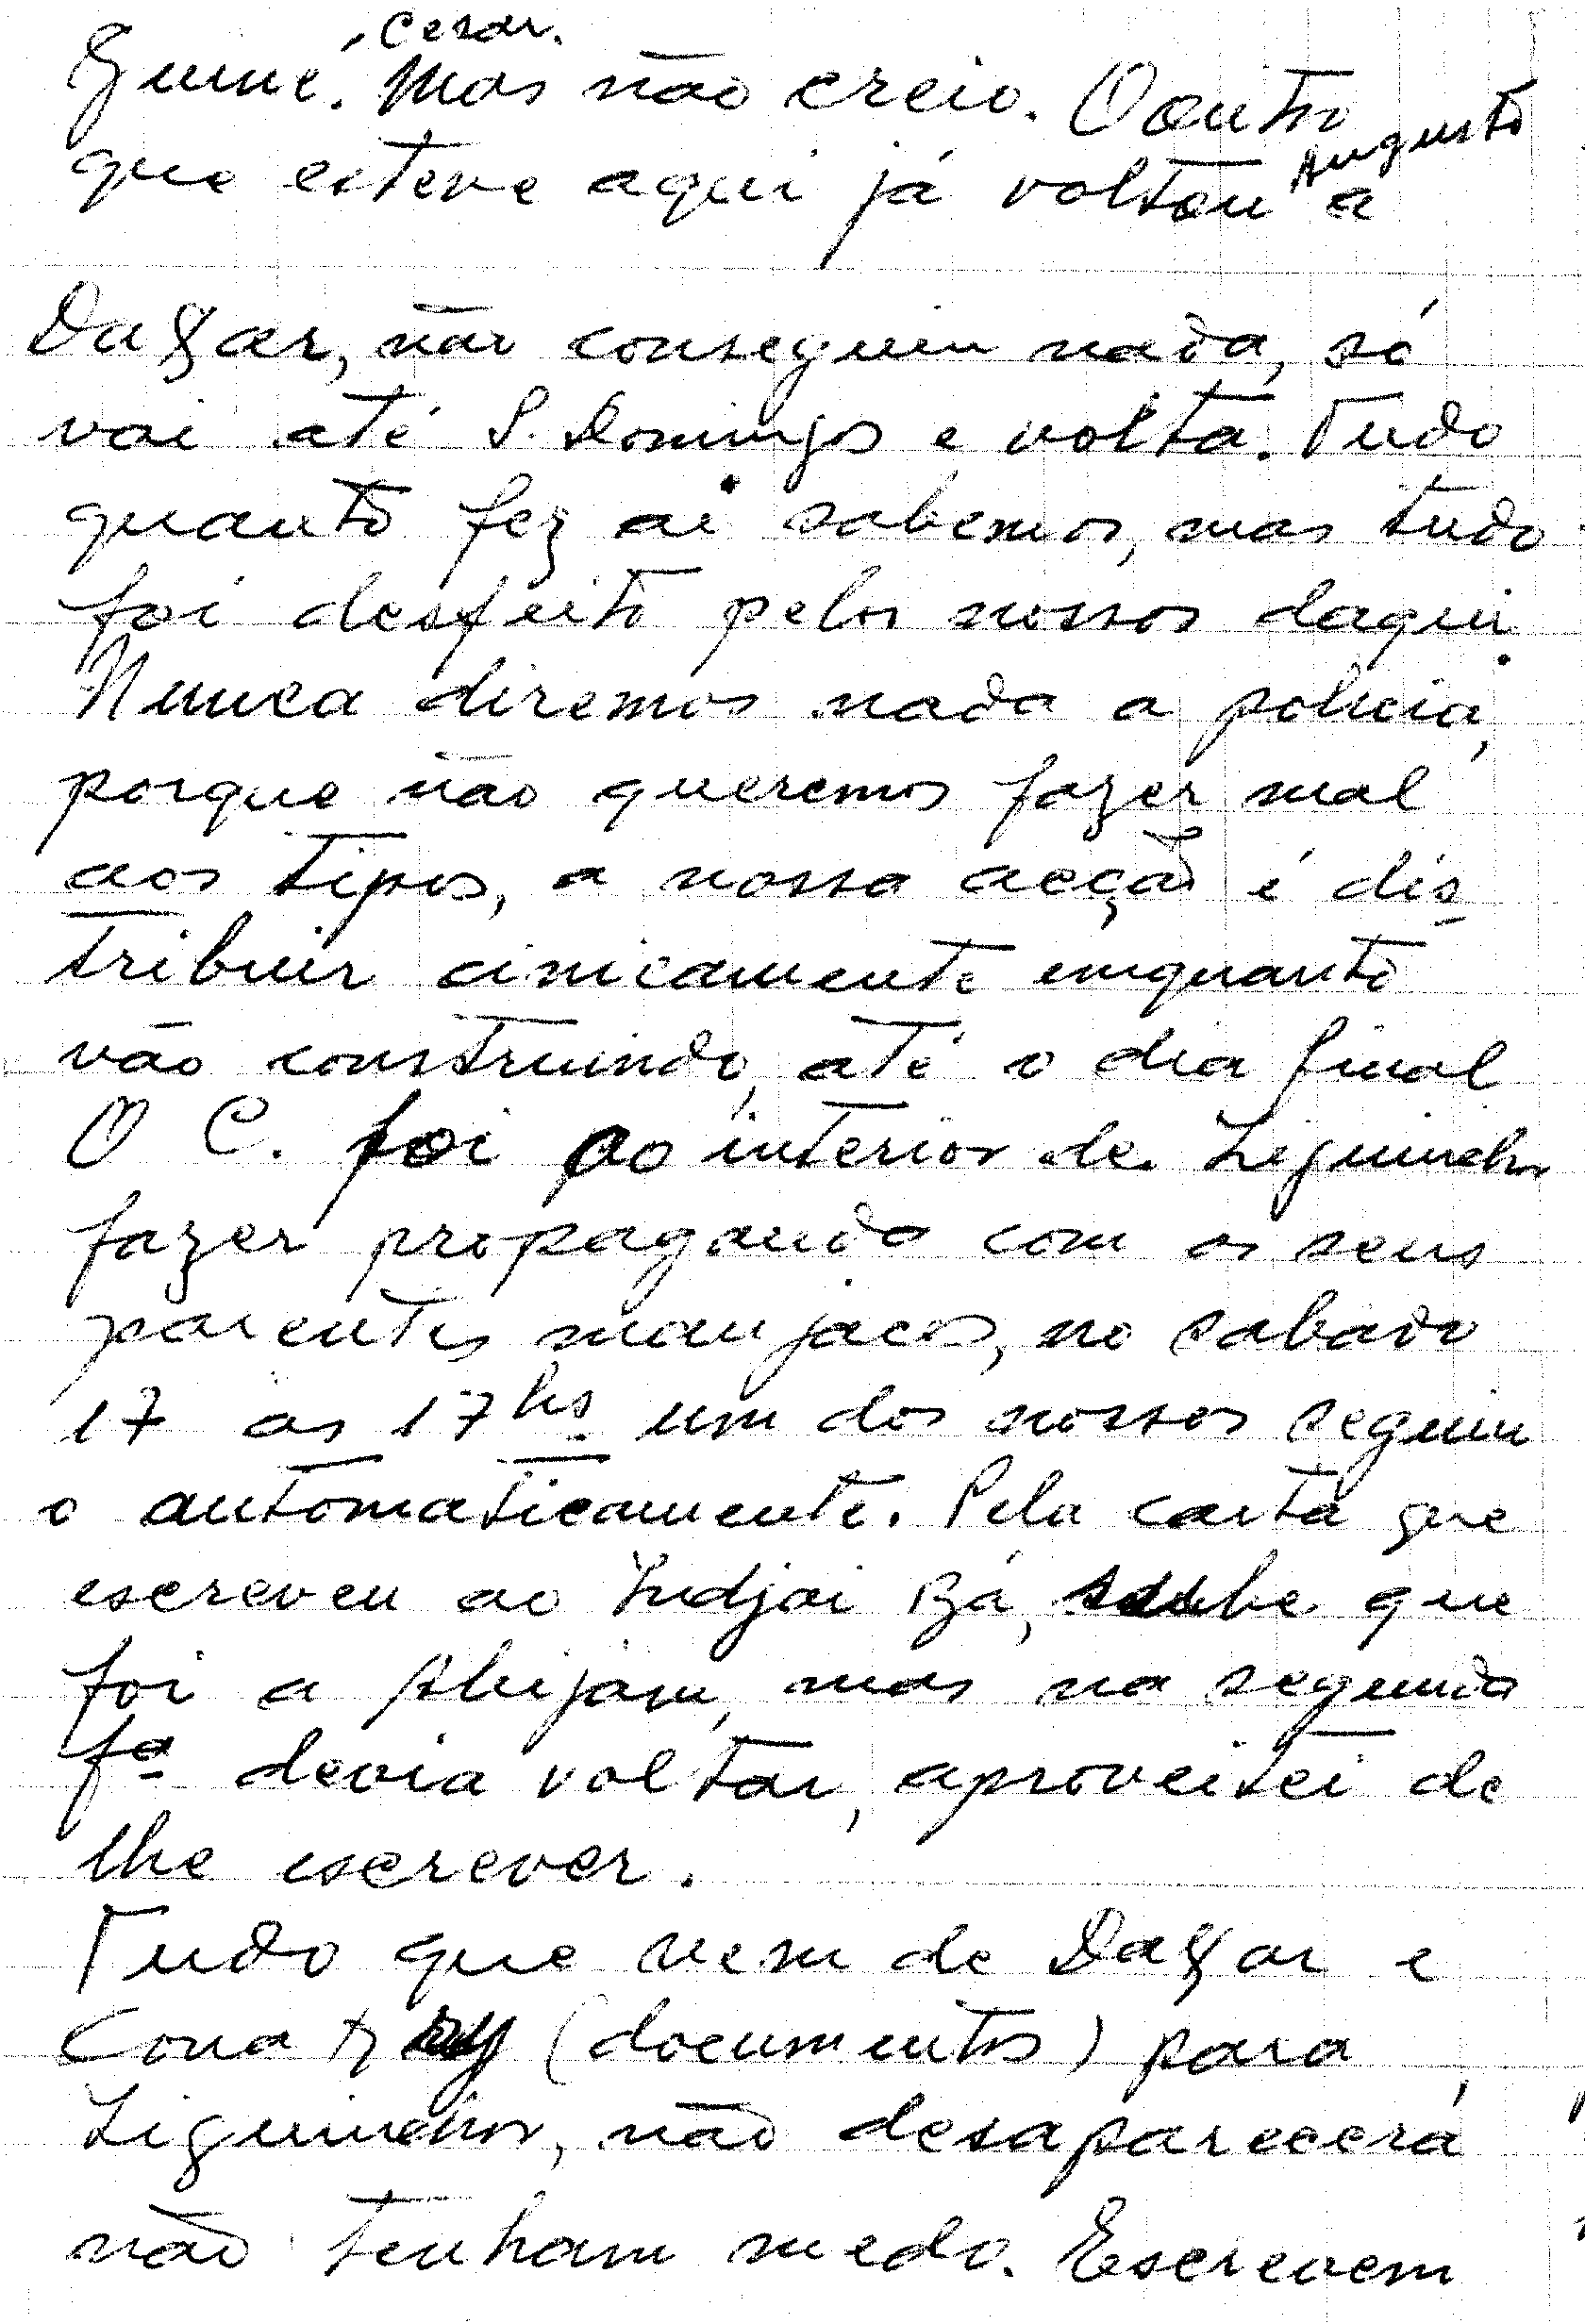 , Cesar.
Guiné. Mas não creio. O outro
que esteve aqui já voltou Augusto a
Dakar, não conseguiu nada, só
vai até S. Domingos e volta. Tudo
quanto fez ai sabemos, mas tudo
foi desfeito pelos nossos daqui.
Nunca diremos nada a policia,
porque não queremos fazer mal
aos tipos, a nossa acção é dis-
tribuir cinicamente emquanto
vão construindo, até o dia final
O C. foi ao interior de Ziguinchor
fazer propaganda com os seus
parentes manjacos, no sabado
17 as 17hs. um dos nossos seguiu
o automaticamente. Pela carta que
escreveu ao Indjai Bá, soube que
foi a Abijam, mas na segunda
fª devia voltar, aproveitei de
lhe escrever.
Tudo que vem de Dakar e
Conakry (documentos) para
Ziguinchor, não desaparecerá,
não tenham medo. Escrevem